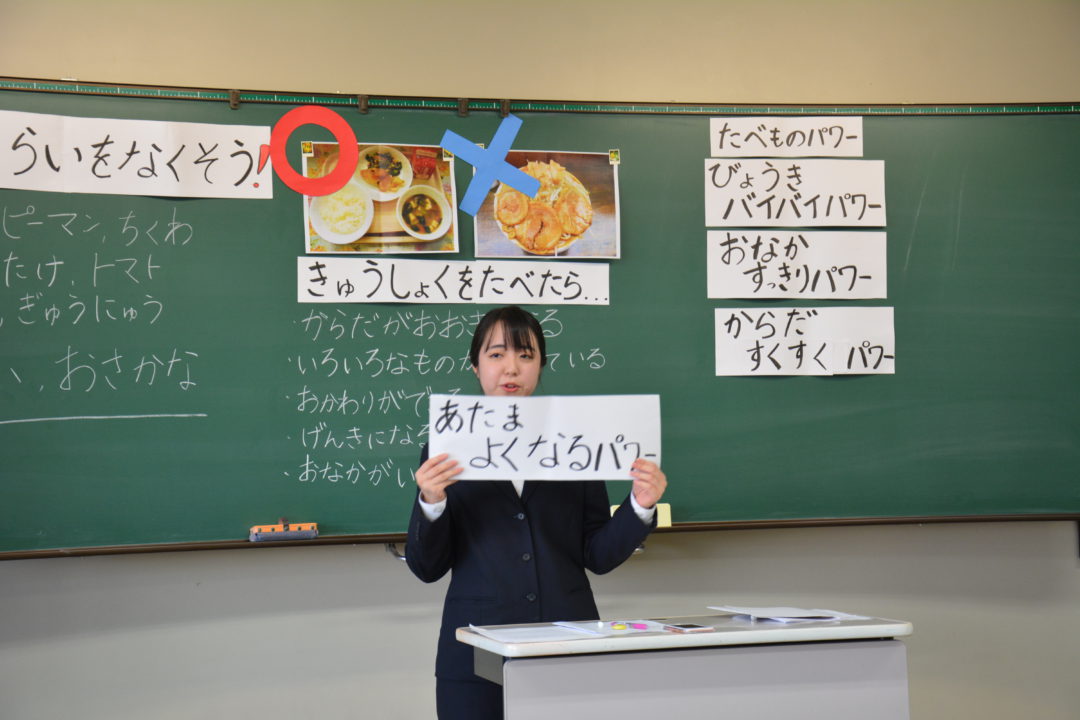 らいをなくそう!
ピーマン、ちくわ
たけ、トマト
ぎゅうにゅう
おさかな
きゅうしょくをたべたら…
・からだがおおき
・いろいろなものが
ている
・おかわりがで
・げんきになる
・おなかがい
あたま
よくなるパワー
たべものパワー
びょうき
バイバイパワー
おなか
すっきりパワー
からだ
すくすくパワー